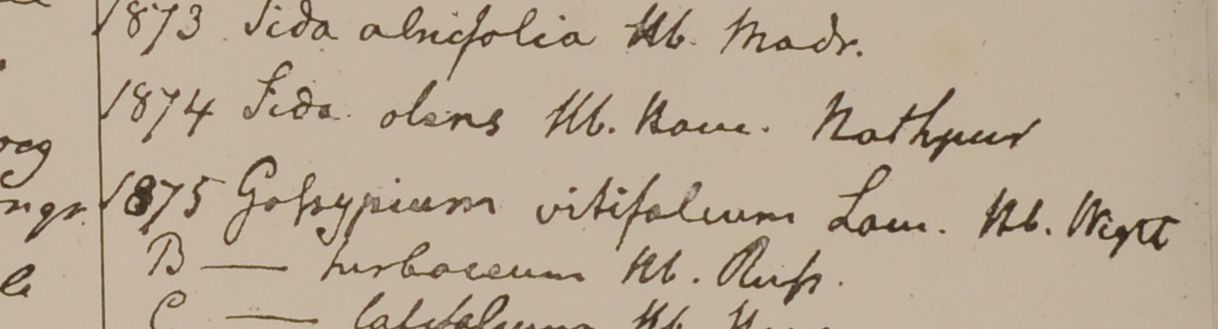 1873 Sida alnifolia Hb. Madr.
1874 Sida olens Hb. Ham. Nathpur
ocg
1875 Gossypium vitifolium Lam. Hb. Wight
ngr.
B — herbaceum Hb. Russ.
le
C — latifolium Hb.